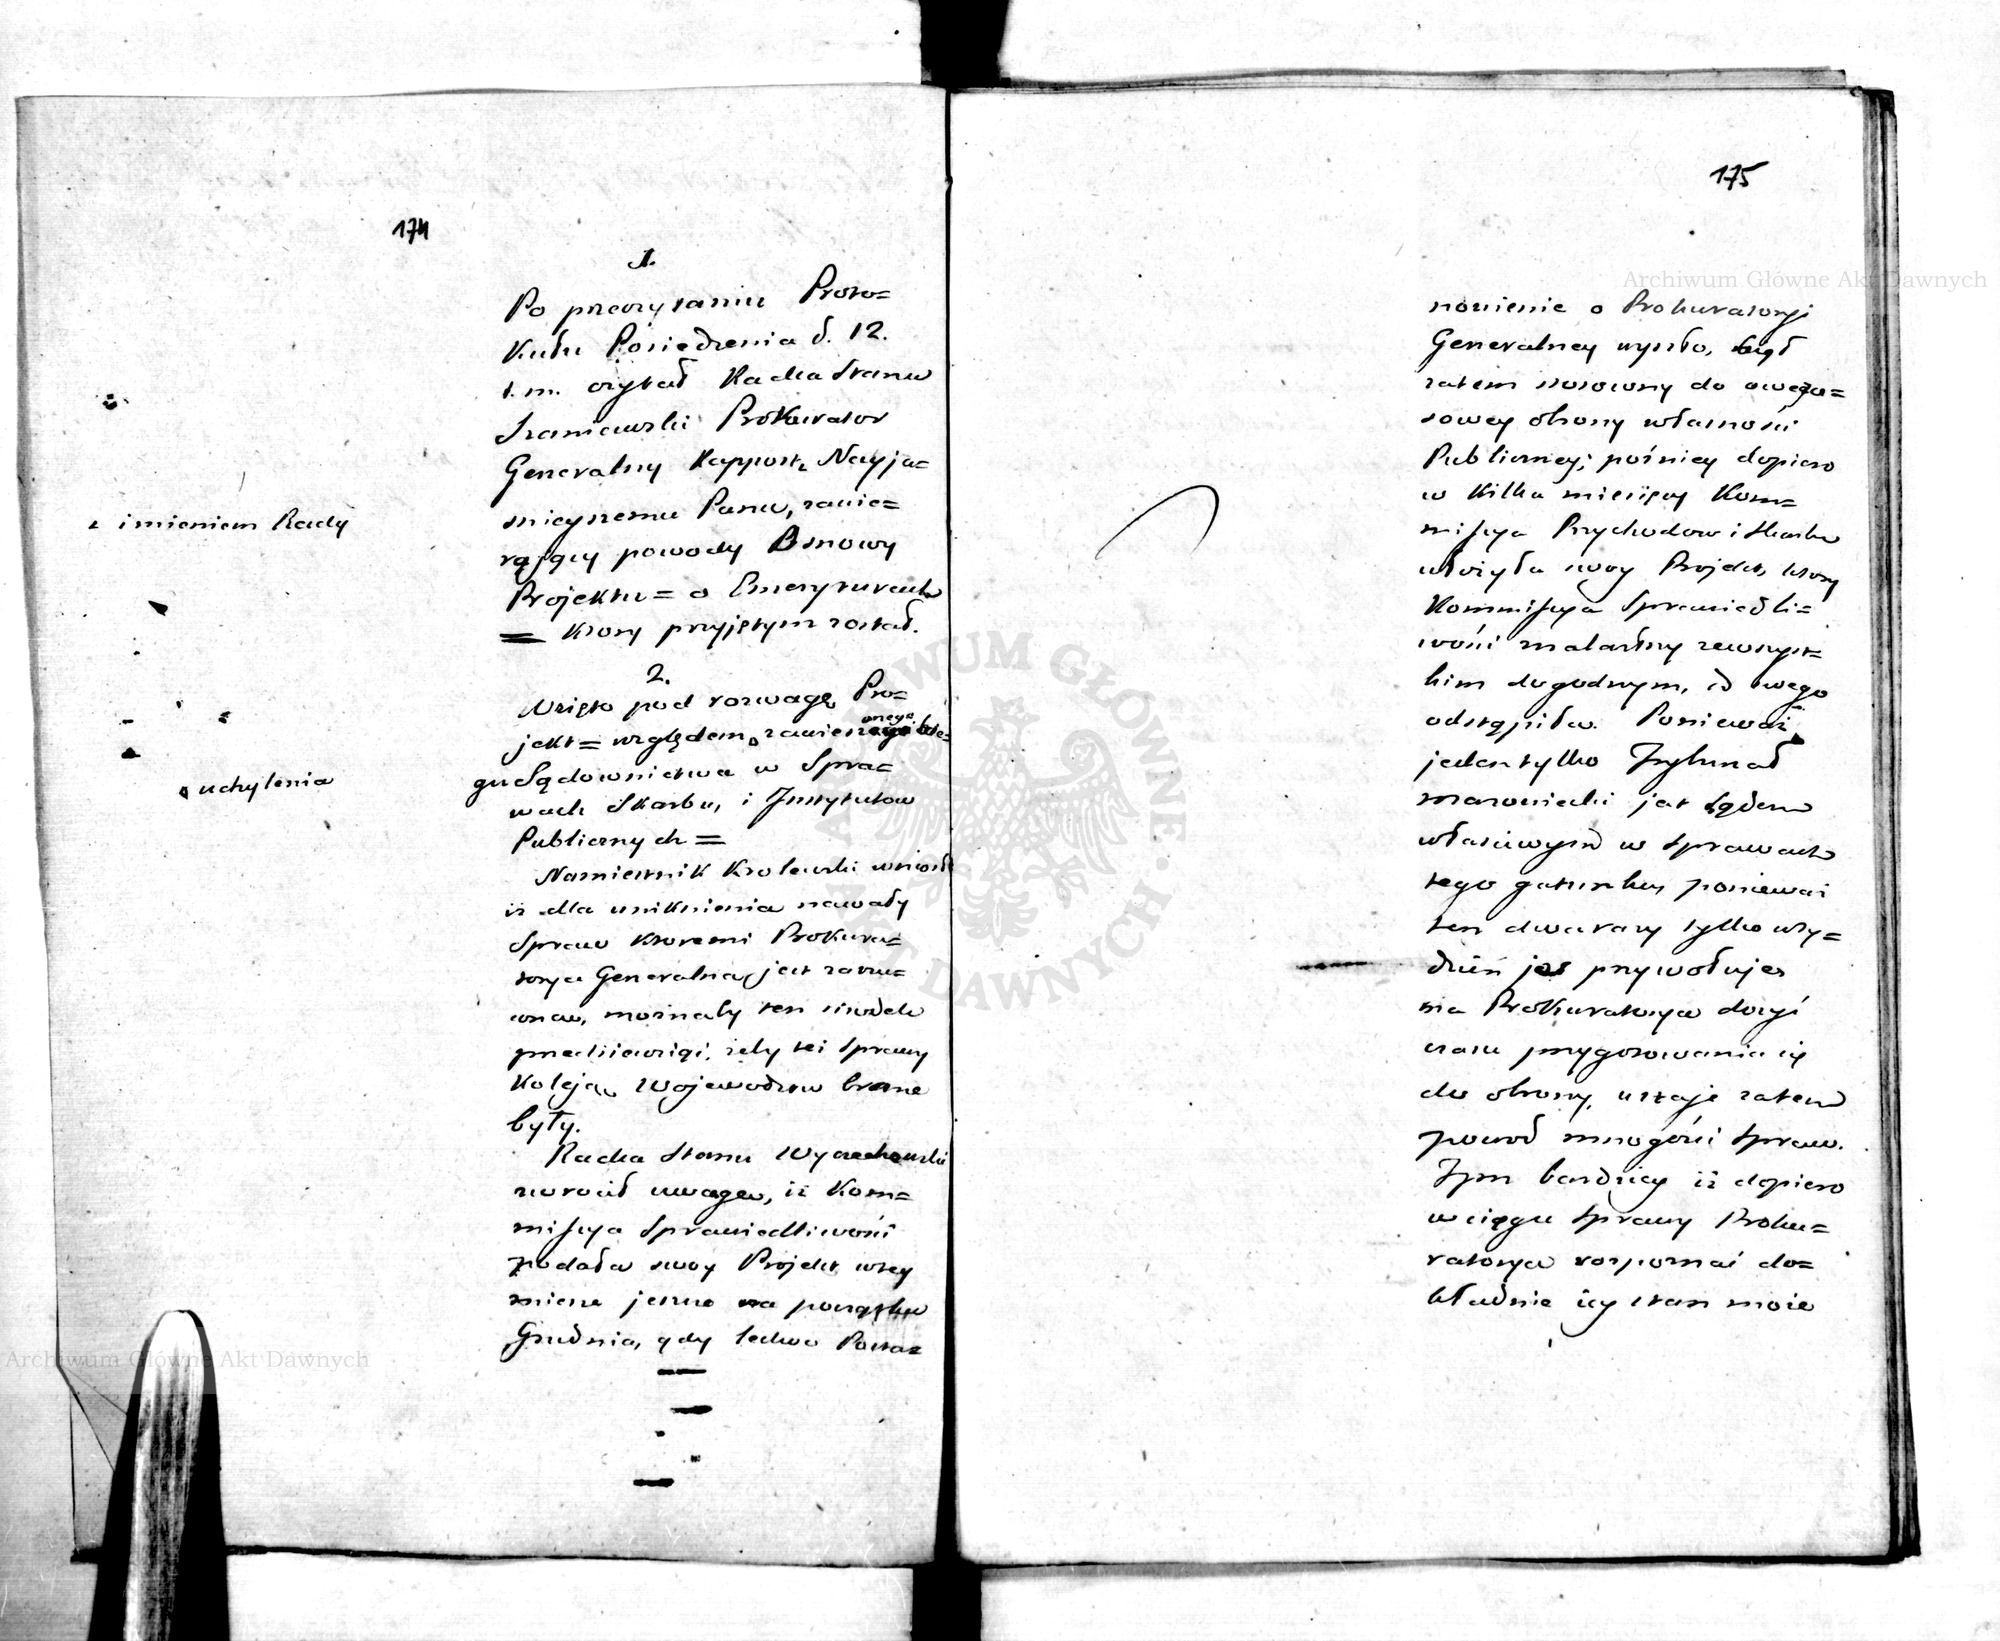 174
1.
Po przeczytaniu Proto=
kułu Posiedzenia d. 12.
t. m. czytał Radca Stanu
Szaniawski Prokurator
Generalny Rapport Nayja=
śnieyszemu Panu, zawie=
rający powody Osnowy
Projektu = o Emeryturach
= ktory przyjętym został.
z imieniem Rady
2.
Wzięto pod rozwagę Pro=
jekt = względem zawieszonego bie=
onego
gu Sądownictwa w Spra=
wach Skarbu, i Instytutow
Publicznych =
uchylenia
Namiestnik Krolewski wniosł
iż dla uniknienia nawały
Spraw ktoremi Prokura=
torya Generalna jest zarzu=
cona, możnaby ten srodek
przedsięwziąć, żeby też sprawy
Koleją Wojewodztw brane
były.
Radca Stanu Wyczechowski
zwrócił uwagę, iż Kom=
missya Sprawiedliwości
podała swoy Projekt w tey
mierze jeszcze na początku
Grudnia, gdy ledwo Posta=
175
Archiwum Główne Akt Dawnych
nowienie o Prokuratoryi
Generalney wyszło, był
zatem stosowny do owcza=
sowey obrony własności
Publiczney; poźniey dopiero
w kilka miesięcy Kom=
missya Przychodow i Skarbu
ułożyła swoy Projekt, ktory
Kommissya Sprawiedli=
wości znalazłszy ze wszyst=
kim dogodnym, od swego
odstąpiła. Ponieważ
jeden tylko Trybunał
mazowiecki jest Sądem
właściwym w sprawach
tego gatunku, ponieważ
ten dwa razy tylko w ty=
dzień je przywołuje,
ma Prokuratorya dosyć
czasu przygotowania się
do obrony, ustaje zatem
powod mnogości spraw.
Tym bardziey iż dopiero
w ciągu sprawy Proku=
ratorya rozpoznać do=
kładnie jey stan może
ARCHIWUM GŁÓWNE AKT DAWNYCH
Archiwum Główne Akt Dawnych